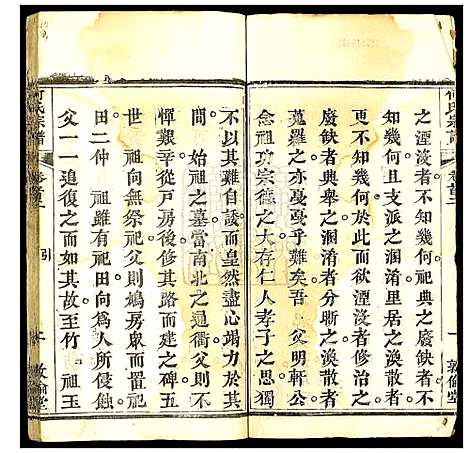 何氏宗譜
卷首三
一
敦倫堂
之湮沒者不知幾何祀典之廢缺者不
知幾何且支派之溷淆者更不知其
幾何於此而欲湮沒者修治之
廢缺者典舉之溷淆者分晰之
蒐羅之亦憂憂乎難矣吾 父明軒公
念祖功宗德之大存仁人孝子之思獨
不以其難自諉而皇然盡心竭力於其
間 始祖之墓當南北之通衢父則不
憚艱辛從戸房後修其路而建之碑五
世 向無祭祀父則鳩房衆而置祀
田二仲 祖雖有祀田向為人所侵蝕
父一一追復之而如其故至竹 祖玉
何氏宗譜
卷首三
引
敦倫堂